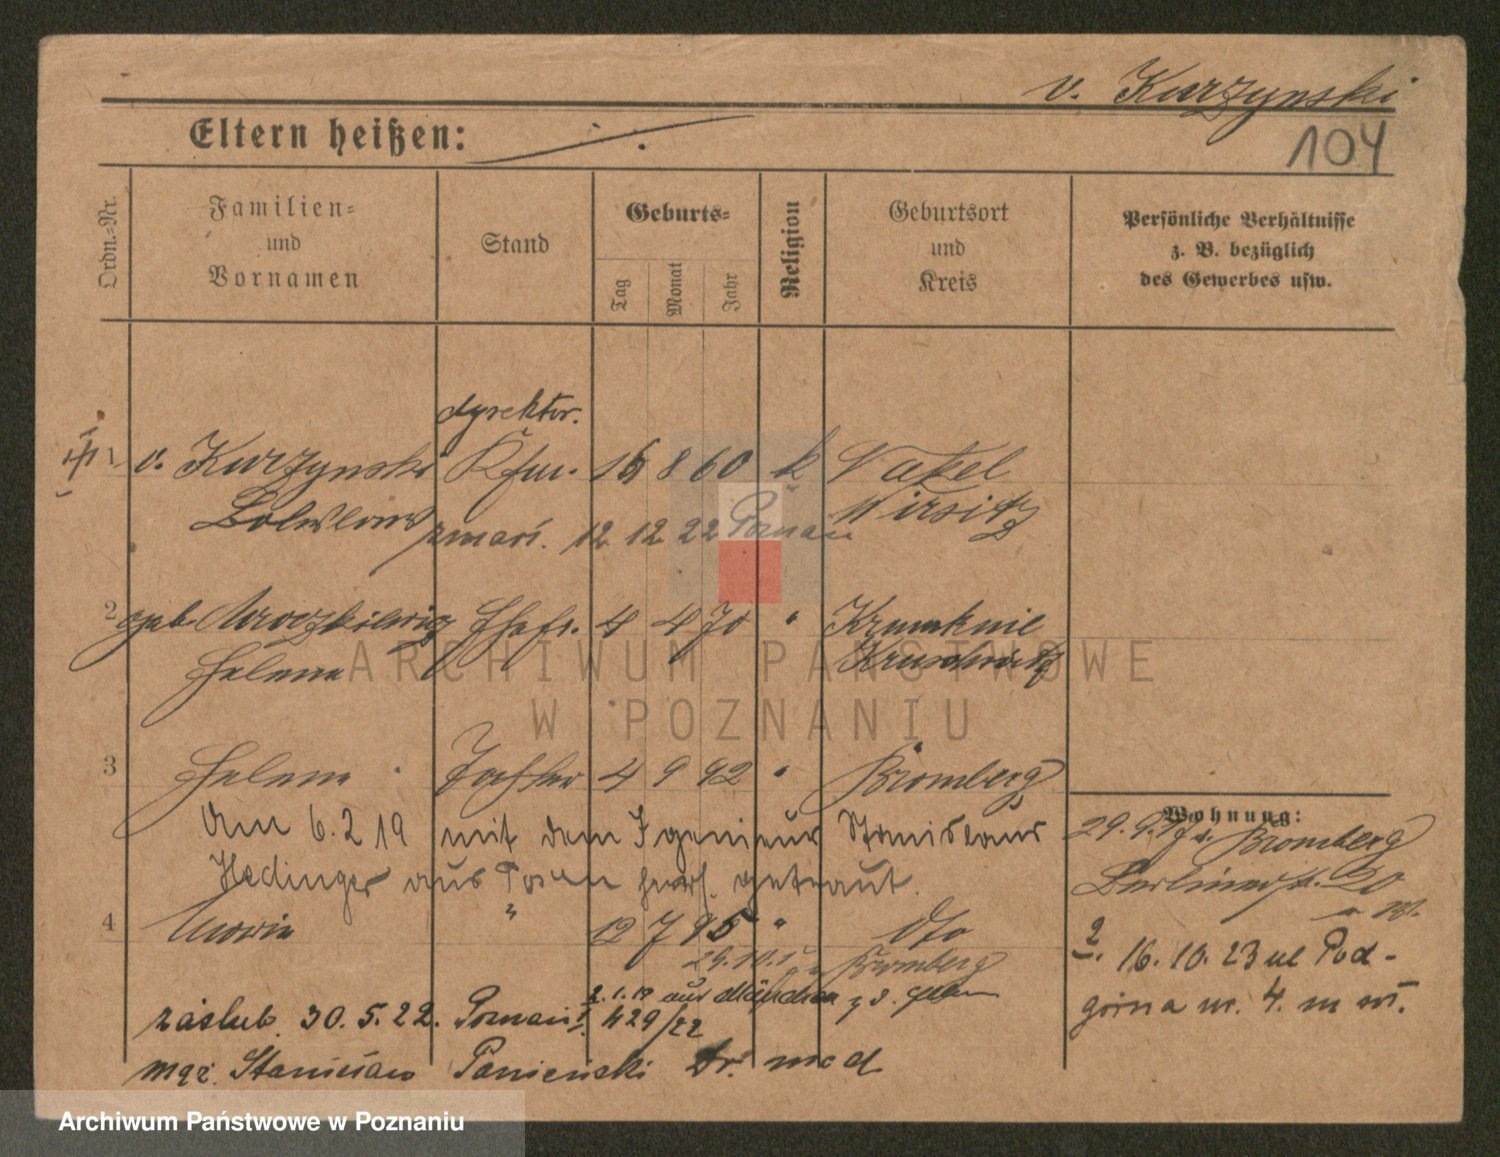 v. Kurzynski
104
Eltern heißen:
Ordn.-Nr.
Familien-
und
Vornamen
Stand
Geburts-
Tag
Monat
Jahr
Religion
Geburtsort
und
Kreis
Persönliche Verhältnisse
z. B. bezüglich
des Gewerbes usw.
dyrektor.
1 v. Kurzynski Kfm. 16 8 60 k Nakel
Boleslaus Wirsitz
zmarł. 12 12 22 Poznań
2 geb. Mroczkiewicz Ehefr. 4 4 70 " Krumknie
Helene Kruschwitz
3 Helene Tochter 4 9 92 " Bromberg
Am 6.2 19 mit dem Igenieur Stanislaus
Hedinger aus Posen getraut.
4 Maria " 12 7 95 " dto
29.10.17 Bromberg
2.1.19 aus München z. d. Eltern
zaślub. 30. 5. 22. Poznań I. 429/22
męż. Stanisław Panieński Dr. med
Wohnung:
29. 9. 17 v. Bromberg
Berlinerstr. 20
16. 10. 23 ul Pod-
górna nr. 4. m wł.
ARCHIWUM PAŃSTWOWE
W POZNANIU
Archiwum Państwowe w Poznaniu